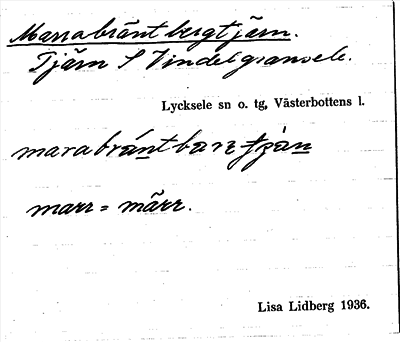 Marrabräntbergtjärn.
Tjärn S Vindelgransele.
Lycksele sn o. tg, Västerbottens l.
marabrántbarttjàn
marr = märr.
Lisa Lidberg 1936.